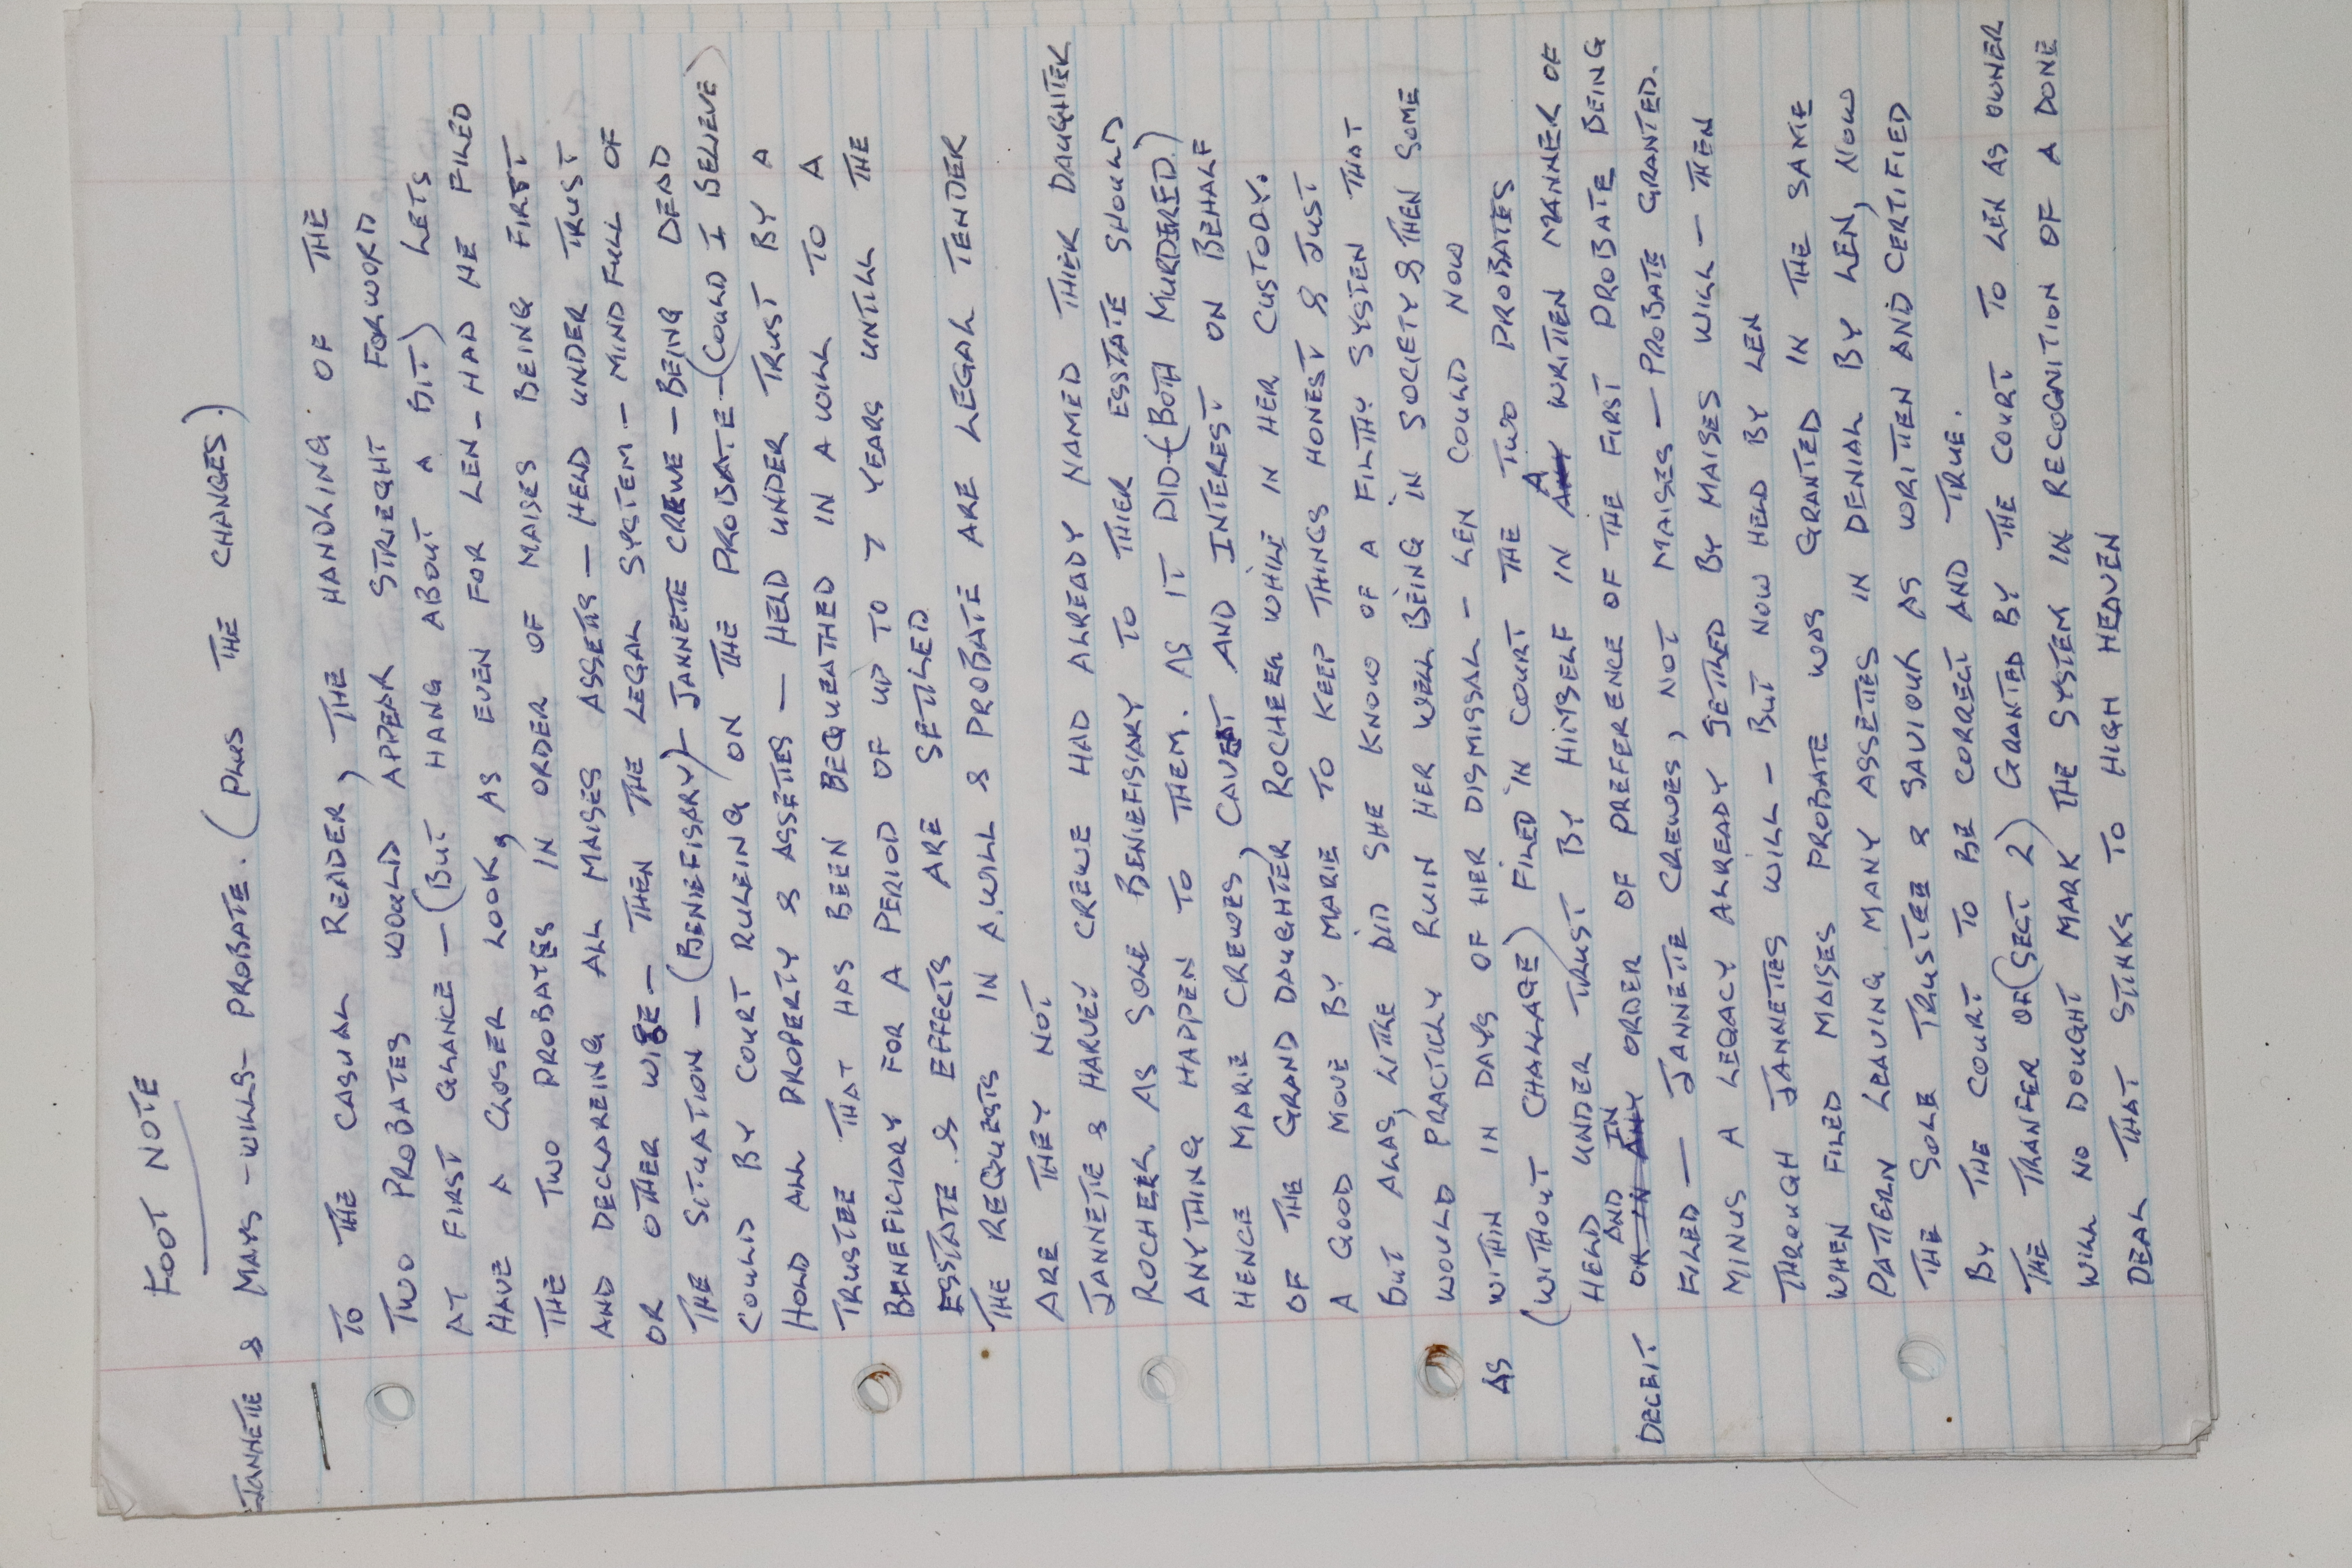 FOOT NOTE
JANNETTE & MAYS - WILLS - PROBATE. (PLUS THE CHANGES).
TO THE CASUAL READER, THE HANDLING OF THE
TWO PROBATES WOULD APPEAR STRIEGHT FORWORD
AT FIRST GLANCE - (BUT HANG ABOUT A BIT) LETS
HAVE A CLOSER LOOK, AS EVEN FOR LEN - HAD HE FILED
THE TWO PROBATES IN ORDER OF MAISES BEING FIRST
AND DECLAREING ALL MAISES ASSETTS - HELD UNDER TRUST
OR OTHER WISE - THEN THE LEGAL SYSTEM - MINDFULL OF
THE SITUATION - (BENIEFISARY) - JANNETE CREWE - BEING DEAD
COULD BY COURT RULEING ON THE PROBATE - (COULD I BELIEVE)
HOLD ALL PROPERTY & ASSETTES - HELD UNDER TRUST BY A
TRUSTEE THAT HAS BEEN BEQUEATHED IN A WILL TO A
BENEFICIARY FOR A PERIOD OF UP TO 7 YEARS UNTILL THE
ESSTATE & EFFECTS ARE SETTLED
THE REQUESTS IN A WILL & PROBATE ARE LEGAL TENDER
ARE THEY NOT
JANNETTE & HARVEY CREWE HAD ALREADY NAMED THIER DAUGHTER
ROCHEEL AS SOLE BENIEFISIARY TO THIER ESSTATE SHOULD
ANYTHING HAPPEN TO THEM. AS IT DID - (BOTH MURDERED.)
HENCE MARIE CREWES, CAVEAT AND INTEREST ON BEHALF
OF THE GRAND DAUGHTER ROCHEEL WHILE IN HER CUSTODY.
A GOOD MOVE BY MARIE TO KEEP THINGS HONEST & JUST
BUT ALAS, LITTLE DID SHE KNOW OF A FILTHY SYSTEN THAT
WOULD PRACTICLY RUIN HER WELL BEING IN SOCIETY & THEN SOME
AS WITHIN IN DAYS OF HER DISMISSAL - LEN COULD NOW
(WITHOUT CHALLAGE) FILED IN COURT THE TWO PROBATES
HELD UNDER TRUST BY HIMSELF IN ANY A WRITTEN MANNER OF
DECEIT OR IN ANY AND IN ORDER OF PREFERENCE OF THE FIRST PROBATE BEING
FILED - JANNETTE CREWES, NOT MAISES - PROBATE GRANTED.
MINUS A LEGACY ALREADY SETTLED BY MAISES WILL - THEN
THROUGH JANNETTES WILL - BUT NOW HELD BY LEN
WHEN FILED MAISES PROBATE WAS GRANTED IN THE SAME
PATTERN LEAVING MANY ASSETTES IN DENIAL BY LEN, NOW
THE SOLE TRUSTEE & SAVIOUR AS WRITTEN AND CERTIFIED
BY THE COURT TO BE CORRECT AND TRUE.
THE TRANFER OF (SECT 2) GRANTED BY THE COURT TO LEN AS OWNER
WILL NO DOUGHT MARK THE SYSTEM IN RECOGNITION OF A DONE
DEAL THAT STINKS TO HIGH HEAVEN